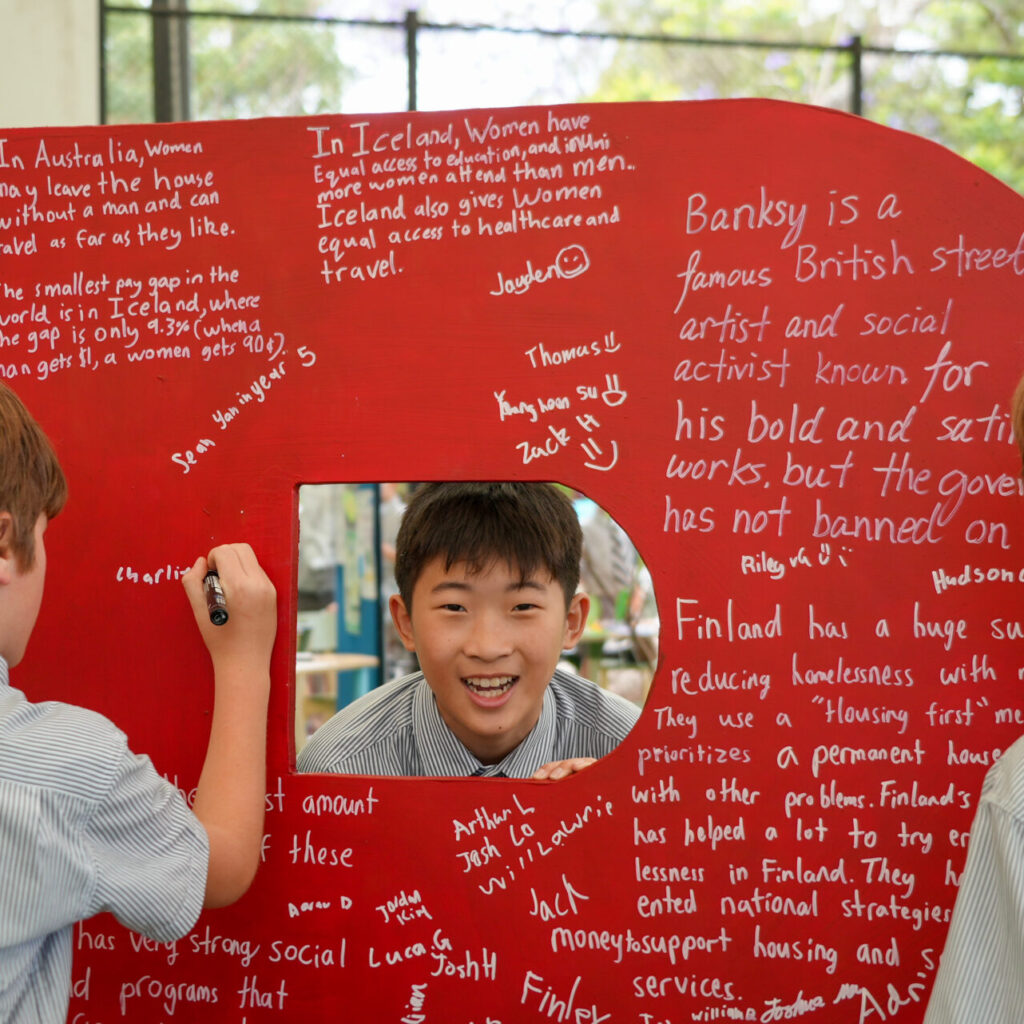 In Australia, Women
may leave the house
without a man and can
travel as far as they like.
The smallest pay gap in the
world is in Iceland, where
the gap is only 9.3% (when a
man gets $1, a women gets 90¢)
Sean Yan in year 5
In Iceland, Women have
Equal access to education, and in uni
more women attend than men..
Iceland also gives Women
equal access to healthcare and
travel.
Jayden
Thomas
Young hoon su
Zack H
Banksy is a
famous British street
artist and social
activist known for
his bold and sati
works, but the gover
has not banned on
Riley
Hudson
charli
Finland has a huge su
reducing homelessness with
They use a "Housing first" me
prioritizes a permanent house
with other problems. Finland's
has helped a lot to try
lessness in Finland. They h
ented national strategies
money to support housing and s
services.
st amount
f these
Aarav D
Jordan
Kim
has very strong social
d programs that
Luca G
Josh H
Arthur L
Josh Lo
Will Lawrie
Jack
Finley
William
Joshua
Adri